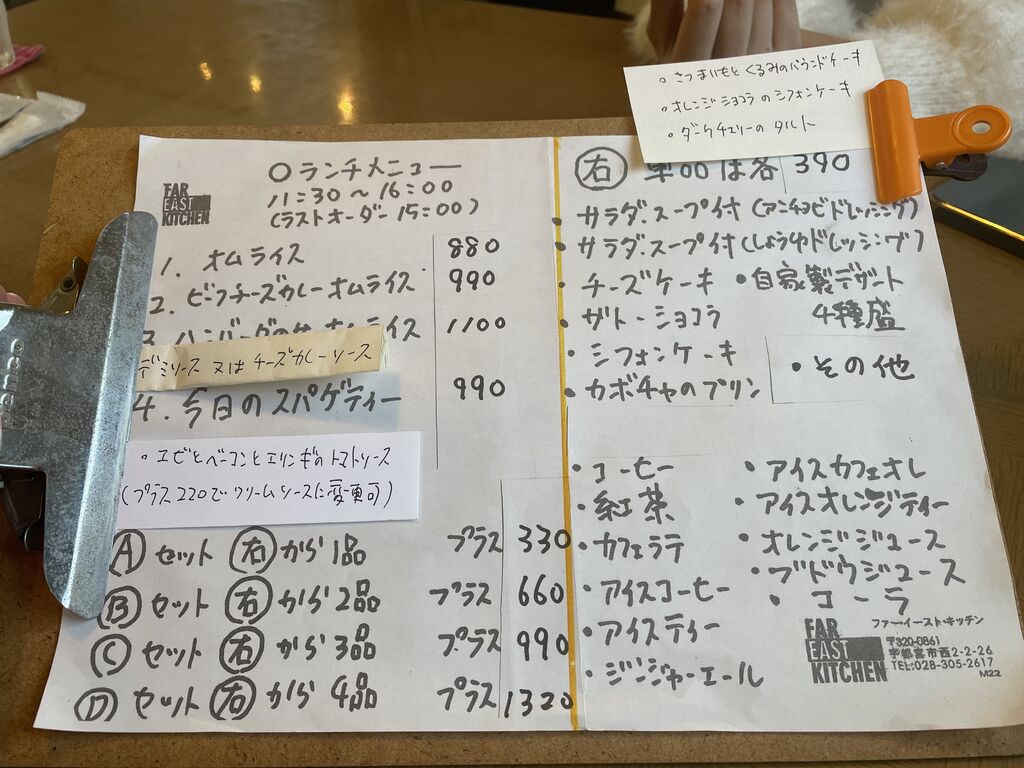 ○ランチメニュー
11:30～16:00
(ラストオーダー 15:00)
FAR
EAST
KITCHEN
1. オムライス 880
2. ビーフチーズカレーオムライス 990
3. ハンバーグのせオムライス 1100
デミソース 又は チーズカレーソース
4. 今日のスパゲティー 990
・エビとベーコンとエリンギのトマトソース
(プラス220でクリームソースに変更可)
Ⓐ セット ㊨から1品 プラス 330
Ⓑ セット ㊨から2品 プラス 660
Ⓒ セット ㊨から3品 プラス 990
Ⓓ セット ㊨から4品 プラス 1320
・さつまいもとくるみのパウンドケーキ
・オレンジショコラのシフォンケーキ
・ダークチェリーのタルト
㊨ 単品は各 390
・サラダ.スープ付(アンチョビドレッシング)
・サラダ.スープ付(しょうゆドレッシング)
・チーズケーキ
・ザトーショコラ
・シフォンケーキ
・カボチャのプリン
・自家製デザート
4種盛
・その他
・コーヒー
・紅茶
・カフェラテ
・アイスコーヒー
・アイスティー
・ジンジャーエール
・アイスカフェオレ
・アイスオレンジティー
・オレンジジュース
・ブドウジュース
・コーラ
FAR
EAST
KITCHEN
ファーイースト・キッチン
〒320-0861
宇都宮市西2-2-26
TEL:028-305-2617
M22